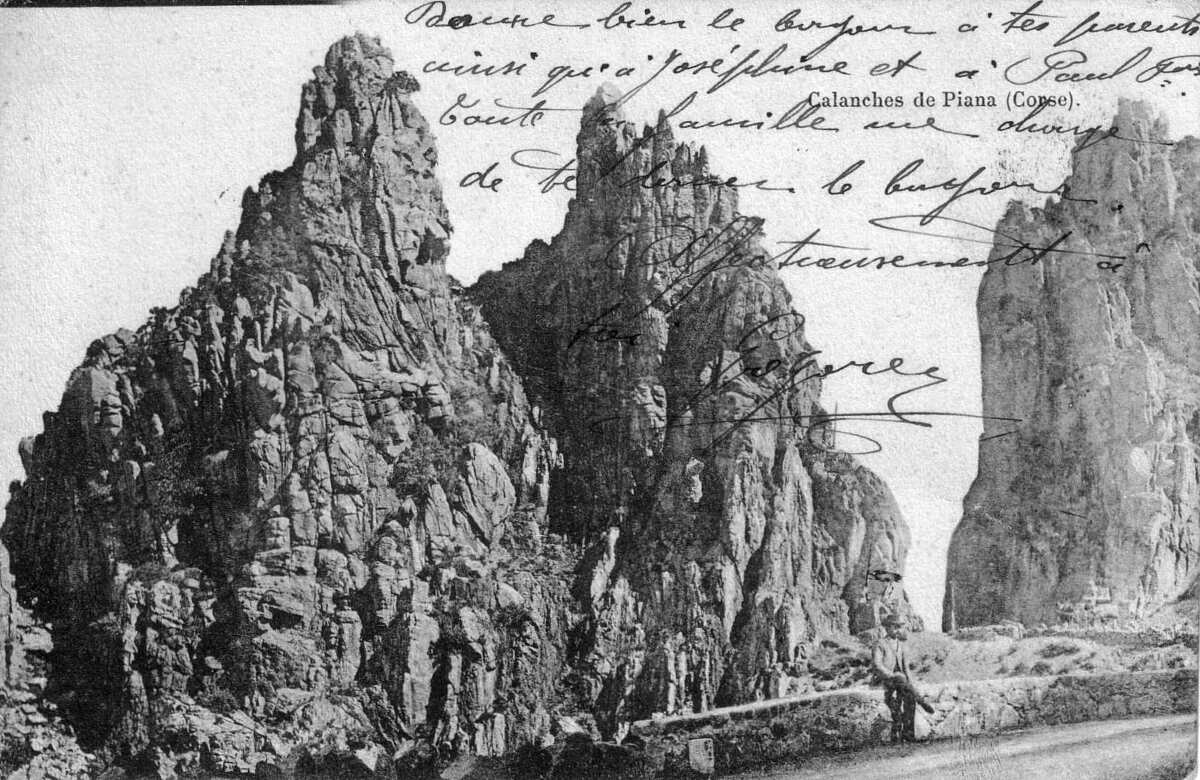 Donne bien le bonjour à tes parents
ainsi qu'à Joséphine et à Paul
Calanches de Piana (Corse).
Toute la famille me charge
de te donner le bonjour
Affectueusement à
toi